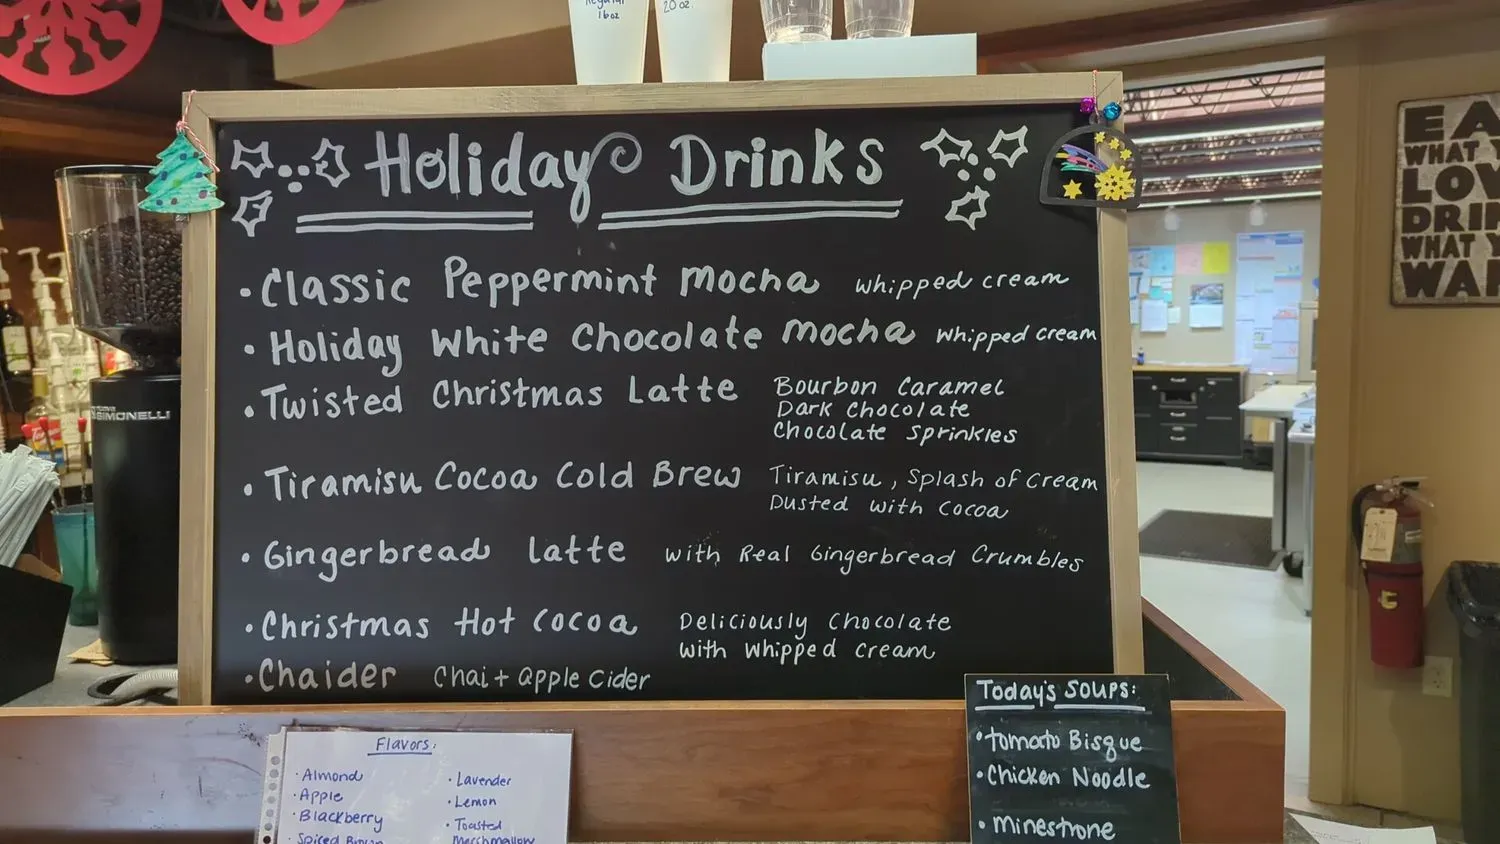 Regular
16oz
20 oz.
Holiday Drinks
• Classic Peppermint Mocha whipped cream
• Holiday White Chocolate Mocha whipped cream
• Twisted Christmas Latte Bourbon Caramel
Dark Chocolate
Chocolate Sprinkles
• Tiramisu Cocoa Cold Brew Tiramisu, Splash of Cream
Dusted with Cocoa
• Gingerbread Latte with Real Gingerbread Crumbles
• Christmas Hot Cocoa Deliciously Chocolate
with Whipped Cream
• Chaider Chai + Apple Cider
SIMONELLI
EA
WHAT Y
LOV
DRIN
WHAT Y
WAN
Today's Soups:
• Tomato Bisque
• Chicken Noodle
• Minestrone
Flavors:
• Almond
• Apple
• Blackberry
• Spiced Brown
• Lavender
• Lemon
• Toasted
Marshmallow